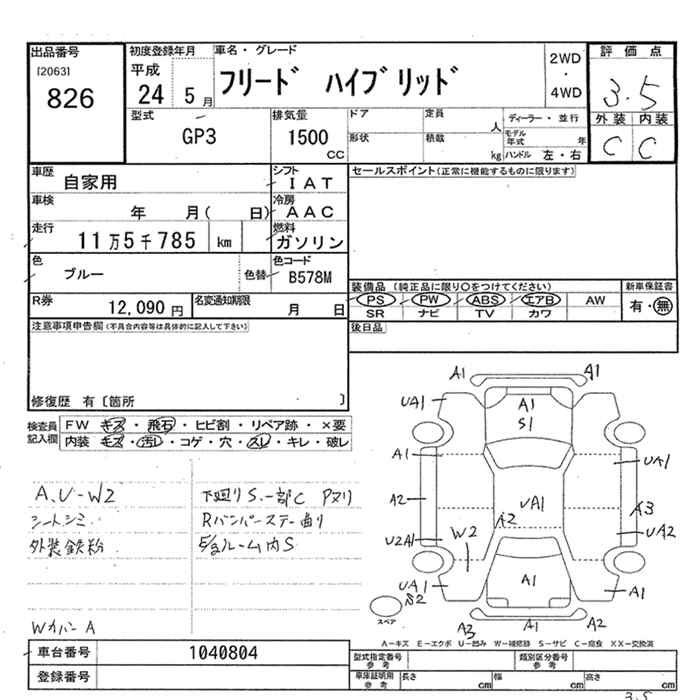 出品番号
[2063]
826
初度登録年月
平成
24 5 月
車名・グレード
フリード ハイブリッド
2WD
・
4WD
評価点
3.5
外装 内装
C C
型式
GP3
排気量
1500
CC
ドア
定員
人
形状
積載
kg
ディーラー・並行
モデル年式 年
ハンドル 左・右
車歴
自家用
シフト
IAT
車検
年 月( 日)
冷房
AAC
走行
11万5千785 km
燃料
ガソリン
色
ブルー
色替
色コード
B578M
R券
12,090 円
名変通知期限
月 日
セールスポイント(正常に機能するものに限ります)
装備品 (純正品に限り○をつけてください)
新車保証書
PS PW ABS エアB AW
有・無
SR ナビ TV カワ
後日品
注意事項申告欄(不具合内容等は具体的に記入して下さい)
修復歴 有〔箇所 〕
検査員記入欄
FW キズ・飛石・ヒビ割・リペア跡・×要
内装 キズ・汚レ・コゲ・穴・スレ・キレ・破レ
A,U-W2
シートシミ
外装鉄粉
WカバーA
下廻りS.一部C Pヌリ
Rバンパーステー曲り
E/gルーム内S
A1
A1
UA1
A1
S1
A1
UA1
A2
UA1
A2
A3
U2A1
W2
UA2
UA1
S2
A1
A1
スペア
A3
A1
A2
A-キズ E-エクボ U-凹み W-補修跡 S-サビ C-腐食 XX-交換済
車台番号
1040804
登録番号
型式指定番号
参考
類別区分番号
参考
車庫証明用
参考
長さ cm
幅 cm
高さ cm
3.5